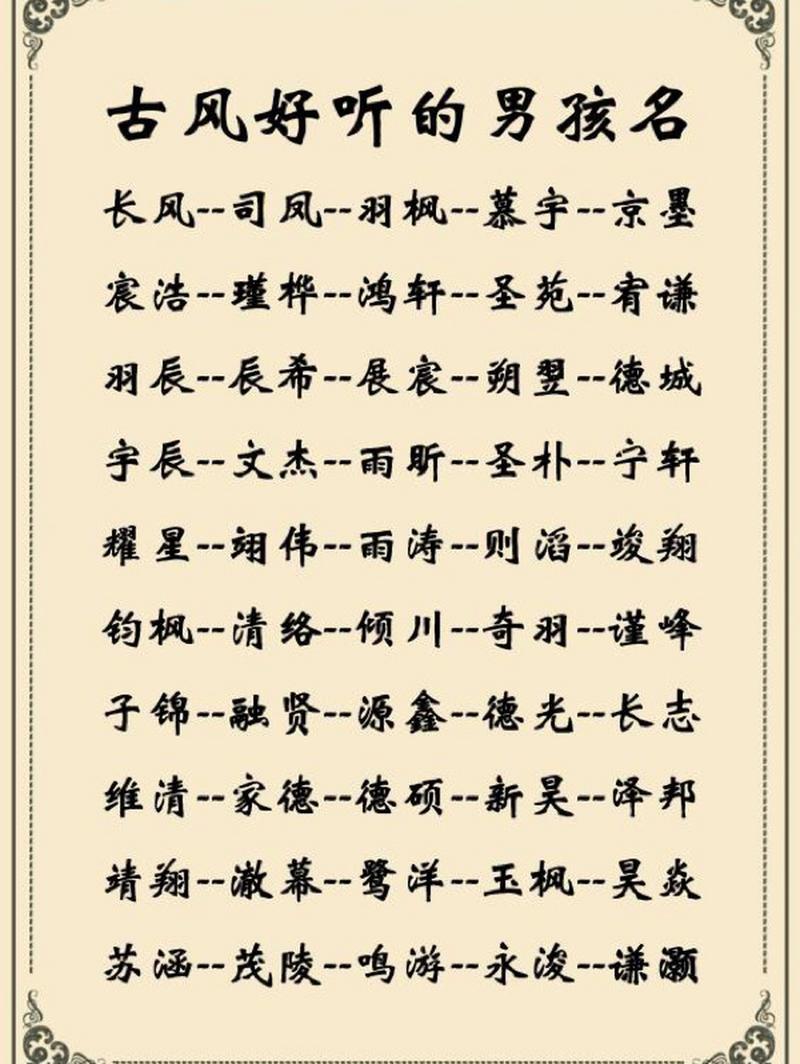 古风好听的男孩名
长风--司凤--羽枫--慕宇--京墨
宸浩--瑾桦--鸿轩--圣苑--宥谦
羽辰--辰希--展宸--朔翌--德城
宇辰--文杰--雨昕--圣朴--宁轩
耀星--翊伟--雨涛--则滔--竣翔
钧枫--清络--倾川--奇羽--谨峰
子锦--融贤--源鑫--德光--长志
维清--家德--德硕--新昊--泽邦
靖翔--澈幕--鹭洋--玉枫--昊焱
苏涵--茂陵--鸣游--永浚--谦灏